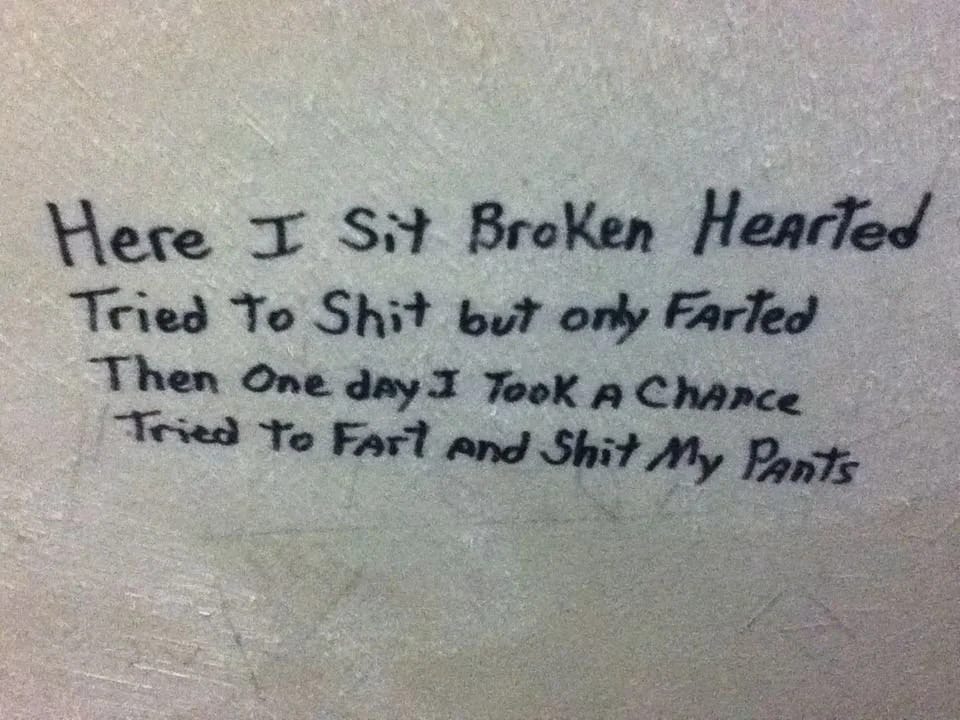 Here I Sit Broken Hearted
Tried To Shit but only Farted
Then One day I Took A Chance
Tried To Fart And Shit My Pants